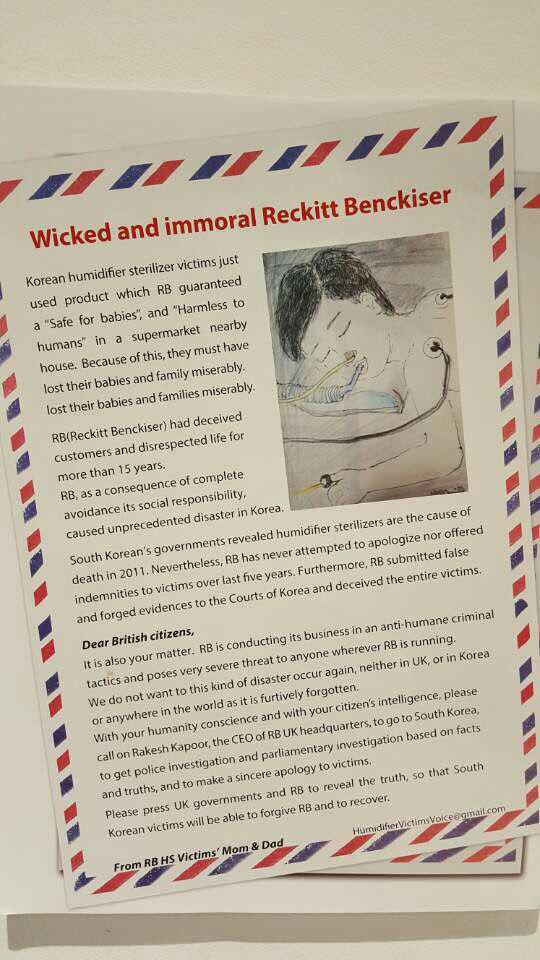 Wicked and immoral Reckitt Benckiser
Korean humidifier sterilizer victims just
used product which RB guaranteed
a "Safe for babies", and "Harmless to
humans" in a supermarket nearby
house. Because of this, they must have
lost their babies and family miserably.
lost their babies and families miserably.
RB(Reckitt Benckiser) had deceived
customers and disrespected life for
more than 15 years.
RB, as a consequence of complete
avoidance its social responsibility,
caused unprecedented disaster in Korea.
South Korean's governments revealed humidifier sterilizers are the cause of
death in 2011. Nevertheless, RB has never attempted to apologize nor offered
indemnities to victims over last five years. Furthermore, RB submitted false
and forged evidences to the Courts of Korea and deceived the entire victims.
Dear British citizens,
It is also your matter. RB is conducting its business in an anti-humane criminal
tactics and poses very severe threat to anyone wherever RB is running.
We do not want to this kind of disaster occur again, neither in UK, or in Korea
or anywhere in the world as it is furtively forgotten.
With your humanity conscience and with your citizen's intelligence, please
call on Rakesh Kapoor, the CEO of RB UK headquarters, to go to South Korea,
to get police investigation and parliamentary investigation based on facts
and truths, and to make a sincere apology to victims.
Please press UK governments and RB to reveal the truth, so that South
Korean victims will be able to forgive RB and to recover.
HumidifierVictimsVoice@gmail.com
From RB HS Victims' Mom & Dad